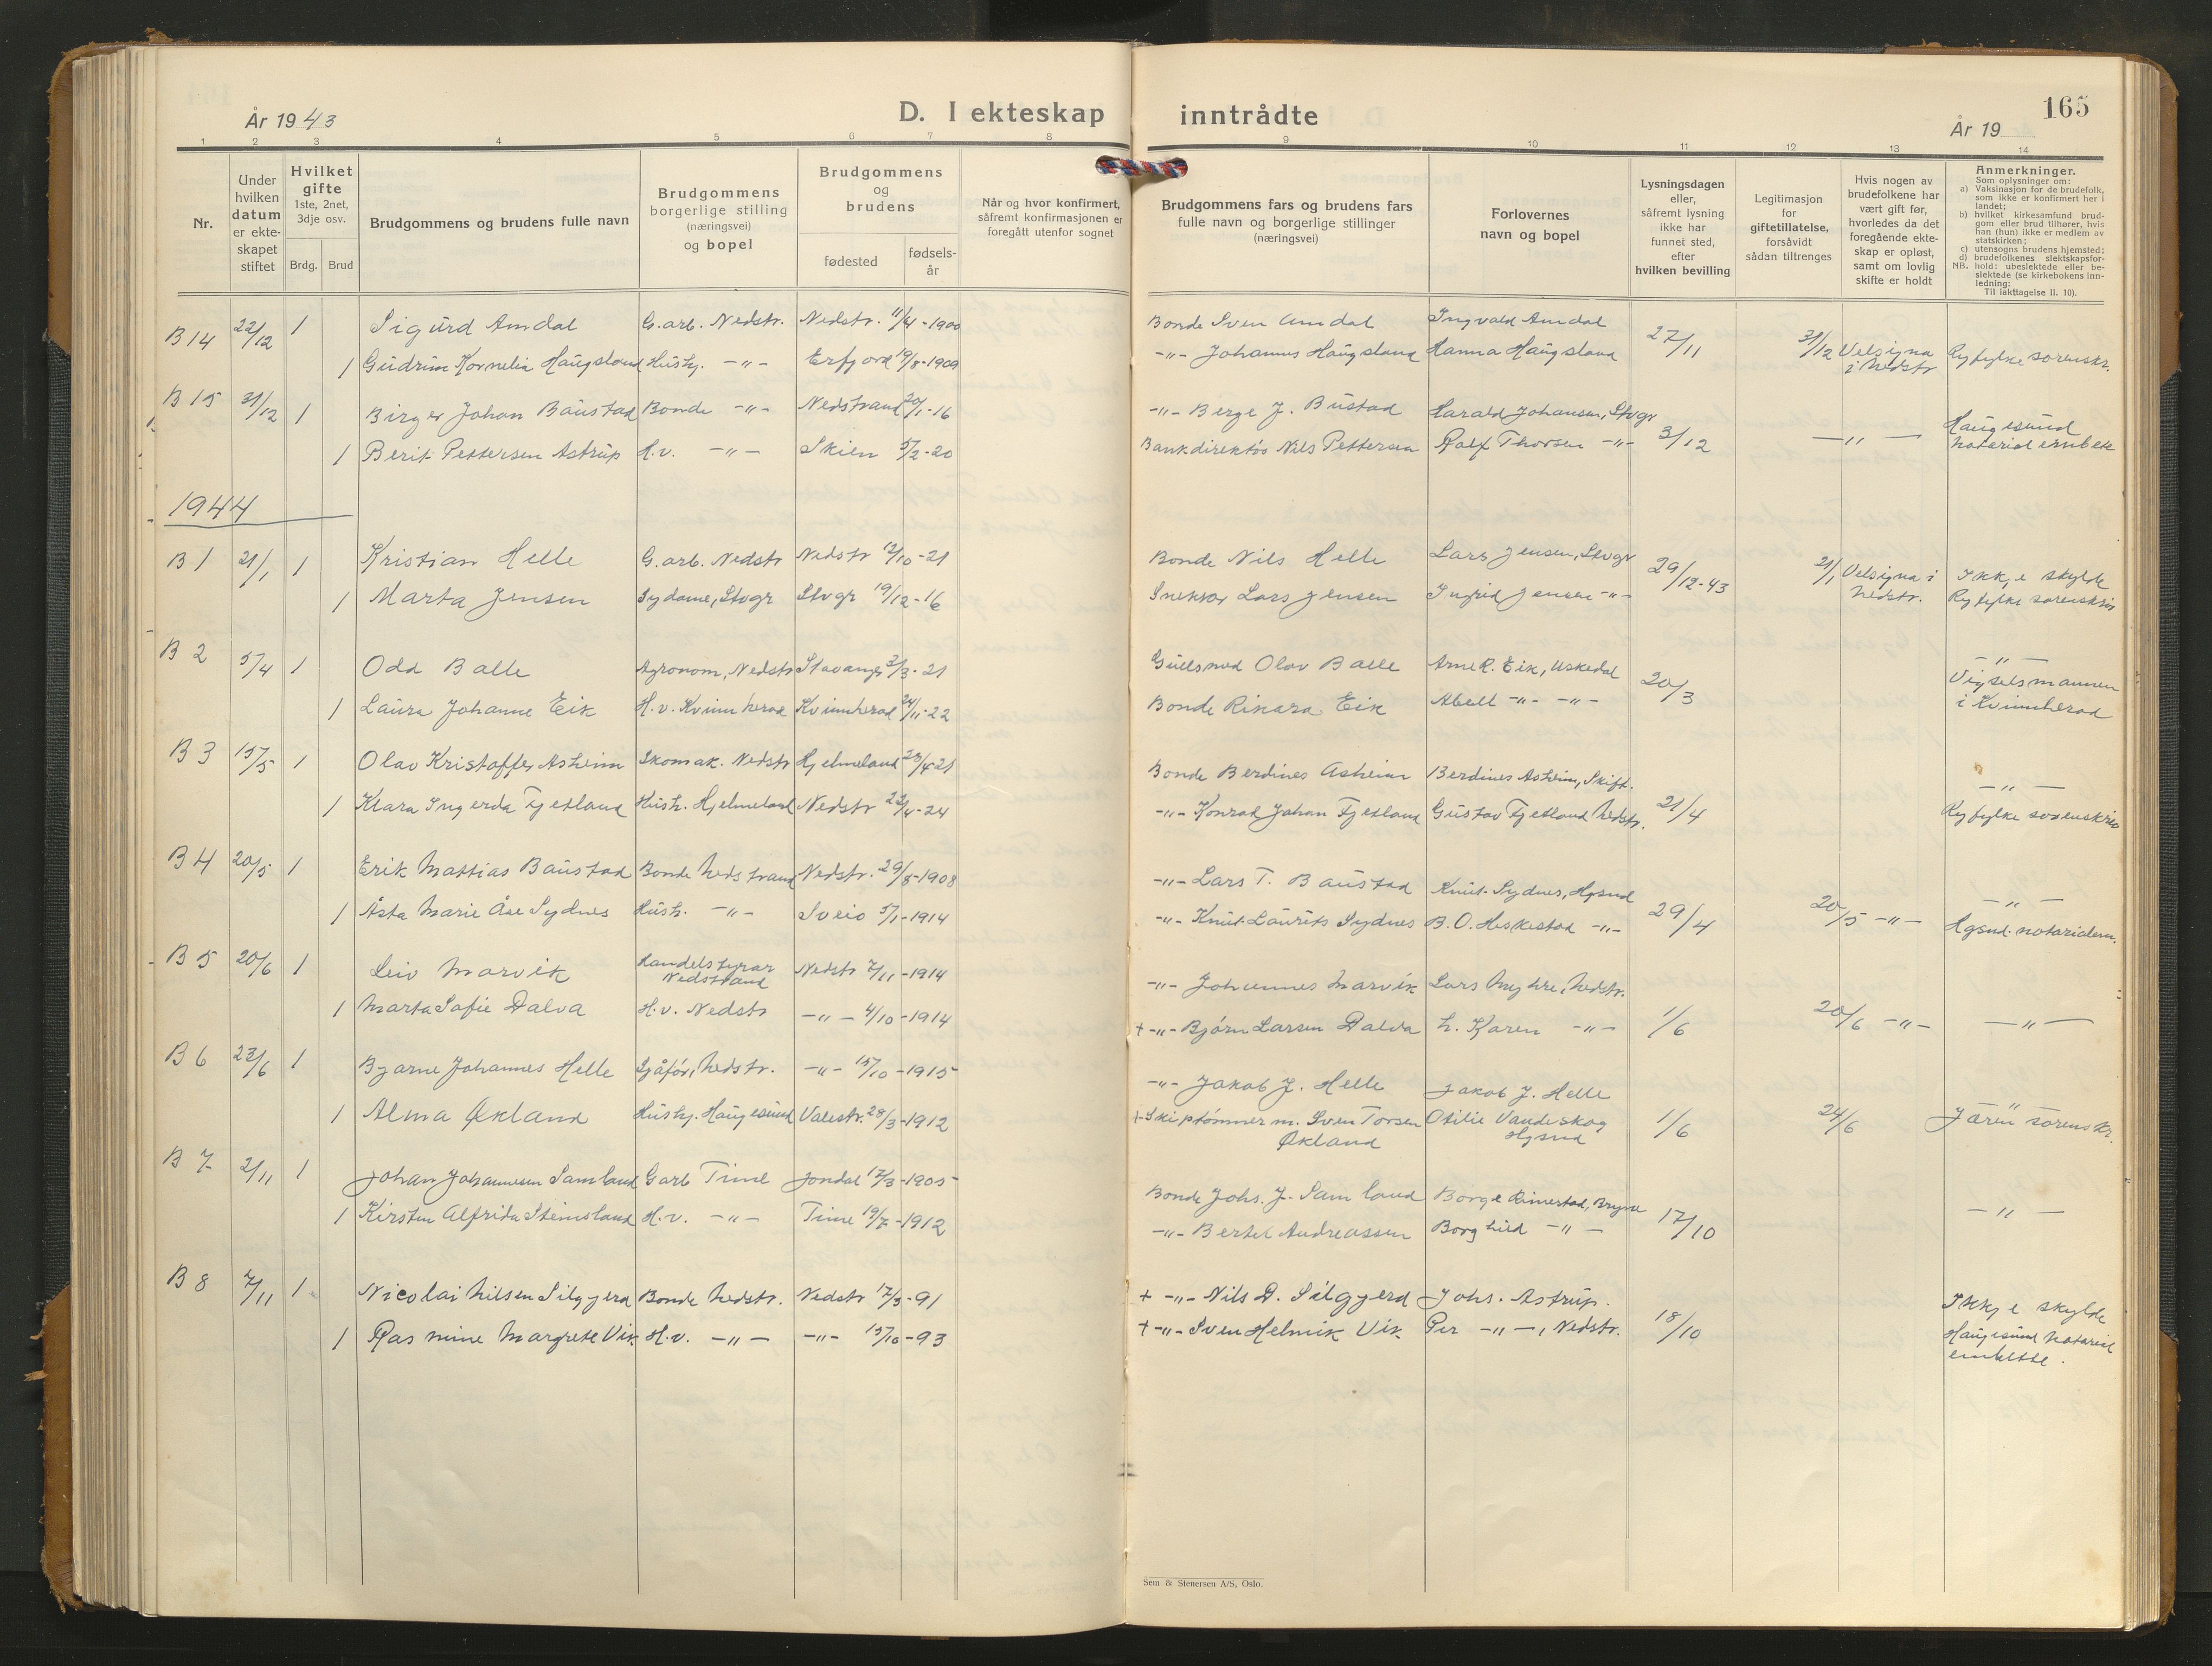 År 1943
D. I ekteskap inntrådte
165
År 19
1 2 3 4 5 6 7 8 9 10 11 12 13 14
Nr.
Under hvilken datum er ekteskapet stiftet
Hvilket gifte
1ste, 2net, 3dje osv.
Brdg. Brud
Brudgommens og brudens fulle navn
Brudgommens borgerlige stilling (næringsvei) og bopel
Brudgommens og brudens
fødested
fødselsår
Når og hvor konfirmert, såfremt konfirmasjonen er foregått utenfor sognet
Brudgommens fars og brudens fars fulle navn og borgerlige stillinger (næringsvei)
Forlovernes navn og bopel
Lysningsdagen eller, såfremt lysning ikke har funnet sted, efter hvilken bevilling
Legitimasjon for giftetillatelse, forsåvidt sådan tiltrenges
Hvis nogen av brudefolkene har vært gift før, hvorledes da det foregående ekteskap er opløst, samt om lovlig skifte er holdt
Anmerkninger.
Som oplysninger om:
a) Vaksinasjon for de brudefolk, som ikke er konfirmert her i landet;
b) hvilket kirkesamfund brudgom eller brud tilhører, hvis han (hun) ikke er medlem av statskirken;
c) utensogns brudens hjemsted;
d) brudefolkenes slektskapsforhold: ubeslektede eller beslektede (se kirkebokens innledning:
NB.
Til iakttagelse II. 10).
B 14 22/12 1 Sigurd Amdal G.arb. Nedstr. Nedstr. 11/4-1900 Bonde Sven Amdal Ingvald Amdal 27/11 31/12 Velsigna i Nedstr Ryfylke sorenskr.
1 Gudrun Kornelia Haugsland Hushj. -"- Erfjord 19/8-1909 -"- Johannes Haugsland Hanna Haugsland
B 15 31/12 1 Birger Johan Baustad Bonde -"- Nedstrand 20/1-16 -"- Berge J. Bustad Harald Johansen, Stvgr 3/12 -"- Haugesund notarial embete
1 Berit Pettersen Astrup H.v. -"- Skien 5/2-20 Bankdirektør Nils Pettersen Ralf Thorsen -"-
1944
B 1 21/1 1 Kristian Helle G.arb. Nedstr Nedstr 12/10-21 Bonde Nils Helle Lars Jensen, Stvgr 29/12-43 21/1 Velsigna i Nedstr. Ikkje skylde Ryfylke sorenskriv
1 Marta Jensen Sydame, Stvgr Stvgr 19/12-16 Snekker Lars Jensen Ingrid Jensen -"-
B 2 5/4 1 Odd Balle Agronom, Nedstr Stavanger 3/3-21 Gullsmed Olav Balle Arne R. Eik, Uskedal 20/3 -"- Vigselsmannen i Kvinnherad
1 Laura Johanne Eik H.v. Kvinnherad Kvinnherad 24/11-22 Bonde Rikard Eik Abell -"- -"-
B 3 15/5 1 Olav Kristoffer Asheim Skomak. Nedstr Hjelmeland 23/4-21 Bonde Berdines Asheim Berdines Asheim, Skift. 21/4 -"- Ryfylke sorenskriv
1 Klara Ingerda Fjetland Hush. Hjelmeland Nedstr 22/4-24 -"- Konrad Johan Fjetland Gustav Fjetland Nedstr.
B 4 20/5 1 Erik Mattias Baustad Bonde Nedstrand Nedstr. 29/8-1908 -"- Lars T. Baustad Knut Sydnes, Hgsnd 29/4 20/5 -"- -"- Hgsnd. notarialem.
1 Åsta Marie Åse Sydnes Hush. -"- Sveio 5/1-1914 -"- Knut Laurits Sydnes B. O. Heskestad -"-
B 5 20/6 1 Leiv Marvik Handelstyrar Nedstrand Nedstr 7/11-1914 -"- Johannes Marvik Lars Myhre, Nedstr. 1/6 20/6 -"- -"-
1 Marta Sofie Dalva H.v. Nedstr -"- 4/10-1914 + -"- Bjørn Larsen Dalva h. Karen -"-
B 6 23/6 1 Bjarne Johannes Helle Sjåfør, Nedstr. -"- 15/10-1915 -"- Jakob J. Helle Jakob J. Helle 1/6 24/6 Jæren sorenskr.
1 Alma Økland Hushj. Haugesund Valestr. 28/3-1912 + Skiptømmer m. Sven Torsen Økland Otilie Vandeskog Hgsnd
B 7 2/11 1 Johan Johannesen Samland Garb Time Jondal 17/3-1905 Bonde Johs. J. Samland Borge Rimestad, Bryne 17/10 -"-
1 Kirsten Alfrida Steinsland H.v. -"- Time 19/7-1912 -"- Bertel Andreassen Borghild -"-
B 8 7/11 1 Nicolai Nilsen Silgjerd Bonde Nedstr. Nedstr 17/3-91 + -"- Nils D. Silgjerd Johs. Astrup. 18/10 Ikkje skylde Haugesund Notarial embette.
1 Rasmine Margrete Vik H.v. -"- -"- 15/10-93 + -"- Sven Helmik Vik Per -"-, Nedstr.
Sem & Stenersen A/S, Oslo.